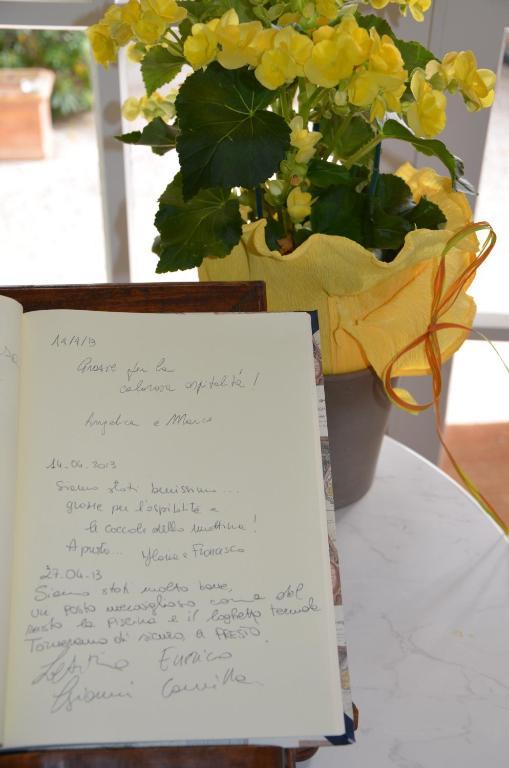 14/4/13
Grazie per la
calorosa ospitalità!
Angelica e Marco
14.04.2013
Siamo stati benissimo...
grazie per l'ospitalità e
le coccole della mattina!
A presto... Ylenia e Francesco
27.04.13
Siamo stati molto bene,
un posto meraviglioso come del
resto la piscina e il laghetto termale
Torneremo di sicuro, a PRESTO.
Enrico
Gianni Camilla